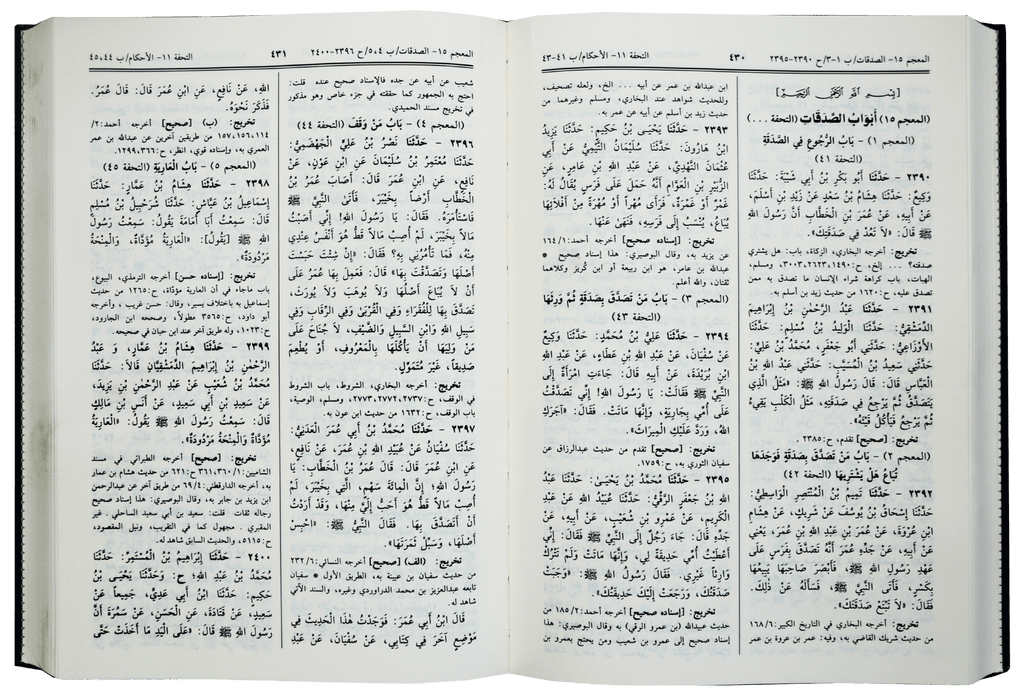 المعجم ١٥- الصدقات/ب ١-٣/ح ٢٣٩٠-٢٣٩٥
٤٣٠
التحفة ١١- الأحكام/ب ٤١-٤٣
[بِسْمِ اللهِ الرَّحْمٰنِ الرَّحِيْمِ]
(المعجم ١٥) أَبْوَابُ الصَّدَقَاتِ (التحفة ...)
(المعجم ١) - بَابُ الرُّجُوعِ فِي الصَّدَقَةِ
(التحفة ٤١)
٢٣٩٠ - حَدَّثَنَا أَبُو بَكْرِ بْنُ أَبِي شَيْبَةَ: حَدَّثَنَا
وَكِيعٌ: حَدَّثَنَا هِشَامُ بْنُ سَعْدٍ عَنْ زَيْدِ بْنِ أَسْلَمَ،
عَنْ أَبِيهِ، عَنْ عُمَرَ بْنِ الْخَطَّابِ أَنَّ رَسُولَ اللهِ
ﷺ قَالَ: «لَا تَعُدْ فِي صَدَقَتِكَ».
تخريج: أخرجه البخاري، الزكاة، باب: هل يشتري
صدقته؟ ... إلخ، ح:١٤٩٠، ٢٦٢٣، ٣٠٠٣، ومسلم،
الهبات، باب كراهة شراء الإنسان ما تصدق به ممن
تصدق عليه، ح:١٦٢٠ من حديث زيد بن أسلم به.
٢٣٩١ - حَدَّثَنَا عَبْدُ الرَّحْمٰنِ بْنُ إِبْرَاهِيمَ
الدِّمَشْقِيُّ: حَدَّثَنَا الْوَلِيدُ بْنُ مُسْلِمٍ: حَدَّثَنَا
الأَوْزَاعِيُّ: حَدَّثَنِي أَبُو جَعْفَرٍ، مُحَمَّدُ بْنُ عَلِيٍّ:
حَدَّثَنِي سَعِيدُ بْنُ الْمُسَيَّبِ: حَدَّثَنِي عَبْدُ اللهِ بْنُ
الْعَبَّاسِ قَالَ: قَالَ رَسُولُ اللهِ ﷺ: «مَثَلُ الَّذِي
يَتَصَدَّقُ ثُمَّ يَرْجِعُ فِي صَدَقَتِهِ، مَثَلُ الْكَلْبِ يَقِيءُ
ثُمَّ يَرْجِعُ فَيَأْكُلُ قَيْئَهُ».
تخريج: [صحيح] تقدم، ح:٢٣٨٥.
(المعجم ٢) - بَابُ مَنْ تَصَدَّقَ بِصَدَقَةٍ فَوَجَدَهَا
تُبَاعُ هَلْ يَشْتَرِيهَا (التحفة ٤٢)
٢٣٩٢ - حَدَّثَنَا تَمِيمُ بْنُ الْمُنْتَصِرِ الْوَاسِطِيُّ:
حَدَّثَنَا إِسْحَاقُ بْنُ يُوسُفَ عَنْ شَرِيكٍ، عَنْ هِشَامِ
ابْنِ عُرْوَةَ، عَنْ عُمَرَ بْنِ عَبْدِ اللهِ بْنِ عُمَرَ، يَعْنِي
عَنْ أَبِيهِ، عَنْ جَدِّهِ عُمَرَ أَنَّهُ تَصَدَّقَ بِفَرَسٍ عَلَى
عَهْدِ رَسُولِ اللهِ ﷺ، فَأَبْصَرَ صَاحِبَهَا يَبِيعُهَا
بِكَسْرٍ، فَأَتَى النَّبِيَّ ﷺ، فَسَأَلَهُ عَنْ ذٰلِكَ.
فَقَالَ: «لَا تَبْتَعْ صَدَقَتَكَ».
تخريج: أخرجه البخاري في التاريخ الكبير:٦/١٦٨
من حديث شريك القاضي به، وفيه: عمر بن عروة بن عمر
ابن عبدالله بن عمر عن أبيه ... الخ، ولعله تصحيف،
وللحديث شواهد عند البخاري، ومسلم وغيرهما من
حديث زيد بن أسلم عن أبيه عن عمر به.
٢٣٩٣ - حَدَّثَنَا يَحْيَى بْنُ حَكِيمٍ: حَدَّثَنَا يَزِيدُ
ابْنُ هَارُونَ: حَدَّثَنَا سُلَيْمَانُ التَّيْمِيُّ عَنْ أَبِي
عُثْمَانَ النَّهْدِيِّ، عَنْ عَبْدِ اللهِ بْنِ عَامِرٍ، عَنِ
الزُّبَيْرِ بْنِ الْعَوَّامِ أَنَّهُ حَمَلَ عَلَى فَرَسٍ يُقَالُ لَهُ:
غَمْرٌ أَوْ غَمْرَةٌ، فَرَأَى مُهْراً أَوْ مُهْرَةً مِنْ أَفْلَائِهَا
يُبَاعُ، يُنْسَبُ إِلَى فَرَسِهِ، فَنَهَى عَنْهَا.
تخريج: [إسناده صحيح] أخرجه أحمد:١/١٦٤
عن يزيد به، وقال البوصيري: هذا إسناد صحيح *
عبدالله بن عامر، هو ابن ربيعة أو ابن كريز وكلاهما
ثقتان، والله أعلم.
(المعجم ٣) - بَابُ مَنْ تَصَدَّقَ بِصَدَقَةٍ ثُمَّ وَرِثَهَا
(التحفة ٤٣)
٢٣٩٤ - حَدَّثَنَا عَلِيُّ بْنُ مُحَمَّدٍ: حَدَّثَنَا وَكِيعٌ
عَنْ سُفْيَانَ، عَنْ عَبْدِ اللهِ بْنِ عَطَاءٍ، عَنْ عَبْدِ اللهِ
ابْنِ بُرَيْدَةَ، عَنْ أَبِيهِ قَالَ: جَاءَتِ امْرَأَةٌ إِلَى
النَّبِيِّ ﷺ فَقَالَتْ: يَا رَسُولَ اللهِ! إِنِّي تَصَدَّقْتُ
عَلَى أُمِّي بِجَارِيَةٍ، وَإِنَّهَا مَاتَتْ. فَقَالَ: «آجَرَكِ
اللهُ، وَرَدَّ عَلَيْكِ الْمِيرَاثَ».
تخريج: [صحيح] تقدم من حديث عبدالرزاق عن
سفيان الثوري به، ح:١٧٥٩.
٢٣٩٥ - حَدَّثَنَا مُحَمَّدُ بْنُ يَحْيَىٰ: حَدَّثَنَا عَبْدُ
اللهِ بْنُ جَعْفَرٍ الرَّقِّيُّ: حَدَّثَنَا عُبَيْدُ اللهِ عَنْ عَبْدِ
الْكَرِيمِ، عَنْ عَمْرِو بْنِ شُعَيْبٍ، عَنْ أَبِيهِ، عَنْ
جَدِّهِ قَالَ: جَاءَ رَجُلٌ إِلَى النَّبِيِّ ﷺ فَقَالَ: إِنِّي
أَعْطَيْتُ أُمِّي حَدِيقَةً لِي، وَإِنَّهَا مَاتَتْ وَلَمْ تَتْرُكْ
وَارِثاً غَيْرِي. فَقَالَ رَسُولُ اللهِ ﷺ: «وَجَبَتْ
صَدَقَتُكَ، وَرَجَعَتْ إِلَيْكَ حَدِيقَتُكَ».
تخريج: [إسناده صحيح] أخرجه أحمد:٢/١٨٥ من
حديث عبيدالله (بن عمرو الرقي) به وقال البوصيري: هذا
إسناد صحيح إلى عمرو بن شعيب ومن يحتج بعمرو بن
المعجم ١٥- الصدقات/ب ٤،٥/ح ٢٣٩٦-٢٤٠٠
٤٣١
التحفة ١١- الأحكام/ب ٤٤،٤٥
شعيب عن أبيه عن جده فالإسناد صحيح عنده قلت:
احتج به الجمهور كما حققته في جزء خاص وهو مذكور
في تخريج مسند الحميدي.
(المعجم ٤) - بَابُ مَنْ وَقَفَ (التحفة ٤٤)
٢٣٩٦ - حَدَّثَنَا نَصْرُ بْنُ عَلِيٍّ الْجَهْضَمِيُّ:
حَدَّثَنَا مُعْتَمِرُ بْنُ سُلَيْمَانَ عَنِ ابْنِ عَوْنٍ، عَنْ
نَافِعٍ، عَنِ ابْنِ عُمَرَ قَالَ: أَصَابَ عُمَرُ بْنُ
الْخَطَّابِ أَرْضاً بِخَيْبَرَ، فَأَتَى النَّبِيَّ ﷺ
فَاسْتَأْمَرَهُ. فَقَالَ: يَا رَسُولَ اللهِ! إِنِّي أَصَبْتُ
مَالاً بِخَيْبَرَ، لَمْ أُصِبْ مَالاً قَطُّ هُوَ أَنْفَسُ عِنْدِي
مِنْهُ، فَمَا تَأْمُرُنِي بِهِ؟ فَقَالَ: «إِنْ شِئْتَ حَبَسْتَ
أَصْلَهَا وَتَصَدَّقْتَ بِهَا» قَالَ: فَعَمِلَ بِهَا عُمَرُ عَلَى
أَنْ لَا يُبَاعَ أَصْلُهَا وَلَا يُوهَبَ وَلَا يُورَثَ،
تَصَدَّقَ بِهَا لِلْفُقَرَاءِ وَفِي الْقُرْبَىٰ وَفِي الرِّقَابِ وَفِي
سَبِيلِ اللهِ وَابْنِ السَّبِيلِ وَالضَّيْفِ، لَا جُنَاحَ عَلَى
مَنْ وَلِيَهَا أَنْ يَأْكُلَهَا بِالْمَعْرُوفِ، أَوْ يُطْعِمَ
صَدِيقاً، غَيْرَ مُتَمَوِّلٍ.
تخريج: أخرجه البخاري، الشروط، باب الشروط
في الوقف، ح:٢٧٣٧، ٢٧٧٢، ٢٧٧٣، ومسلم، الوصية،
باب الوقف، ح:١٦٣٢ من حديث ابن عون به.
٢٣٩٧ - حَدَّثَنَا مُحَمَّدُ بْنُ أَبِي عُمَرَ الْعَدَنِيُّ:
حَدَّثَنَا سُفْيَانُ عَنْ عُبَيْدِ اللهِ بْنِ عُمَرَ، عَنْ نَافِعٍ،
عَنِ ابْنِ عُمَرَ قَالَ: قَالَ عُمَرُ بْنُ الْخَطَّابِ: يَا
رَسُولَ اللهِ! إِنَّ الْمِائَةَ سَهْمٍ، الَّتِي بِخَيْبَرَ، لَمْ
أُصِبْ مَالاً قَطُّ هُوَ أَحَبُّ إِلَيَّ مِنْهَا، وَقَدْ أَرَدْتُ
أَنْ أَتَصَدَّقَ بِهَا. فَقَالَ النَّبِيُّ ﷺ: «احْبِسْ
أَصْلَهَا، وَسَبِّلْ ثَمَرَتَهَا».
تخريج: (الف) [صحيح] أخرجه النسائي:٦/٢٣٢
من حديث سفيان بن عيينة به، الطريق الأول * سفيان
تابعه عبدالعزيز بن محمد الدراوردي وغيره، والسند الآتي
شاهد له.
قَالَ ابْنُ أَبِي عُمَرَ: فَوَجَدْتُ هٰذَا الْحَدِيثَ فِي
مَوْضِعٍ آخَرَ فِي كِتَابِي، عَنْ سُفْيَانَ، عَنْ عَبْدِ
اللهِ، عَنْ نَافِعٍ، عَنِ ابْنِ عُمَرَ قَالَ: قَالَ عُمَرُ.
فَذَكَرَ نَحْوَهُ.
تخريج: (ب) [صحيح] أخرجه أحمد:٢/
١١٤، ١٥٦، ١٥٧ من طريقين آخرين عن عبدالله بن عمر
العمري به، وإسناده قوي، انظر، ح:٣٦٦، ١٢٩٩.
(المعجم ٥) - بَابُ الْعَارِيَةِ (التحفة ٤٥)
٢٣٩٨ - حَدَّثَنَا هِشَامُ بْنُ عَمَّارٍ: حَدَّثَنَا
إِسْمَاعِيلُ بْنُ عَيَّاشٍ: حَدَّثَنَا شُرَحْبِيلُ بْنُ مُسْلِمٍ
قَالَ: سَمِعْتُ أَبَا أُمَامَةَ يَقُولُ: سَمِعْتُ رَسُولَ
اللهِ ﷺ [يَقُولُ]: «الْعَارِيَةُ مُؤَدَّاةٌ، وَالْمِنْحَةُ
مَرْدُودَةٌ».
تخريج: [إسناده حسن] أخرجه الترمذي، البيوع،
باب ماجاء في أن العارية مؤداة، ح:١٢٦٥ من حديث
إسماعيل به باختلاف يسير، وقال: حسن غريب، وأخرجه
أبو داود، ح:٣٥٦٥ مطولاً، وصححه ابن الجارود،
ح:١٠٢٣، وله طريق آخر عند ابن حبان في صحيحه.
٢٣٩٩ - حَدَّثَنَا هِشَامُ بْنُ عَمَّارٍ، وَ عَبْدُ
الرَّحْمٰنِ بْنُ إِبْرَاهِيمَ الدِّمَشْقِيَّانِ قَالَا: حَدَّثَنَا
مُحَمَّدُ بْنُ شُعَيْبٍ عَنْ عَبْدِ الرَّحْمٰنِ بْنِ يَزِيدَ،
عَنْ سَعِيدِ بْنِ أَبِي سَعِيدٍ، عَنْ أَنَسِ بْنِ مَالِكٍ
قَالَ: سَمِعْتُ رَسُولَ اللهِ ﷺ يَقُولُ: «الْعَارِيَةُ
مُؤَدَّاةٌ وَالْمِنْحَةُ مَرْدُودَةٌ».
تخريج: [صحيح] أخرجه الطبراني في مسند
الشاميين:١/٣٦٠، ٣٦١ ح:٦٢١ من حديث هشام بن عمار
به، وأخرجه الدارقطني:٤/٦٩ من طريق آخر عن عبدالرحمن
ابن يزيد بن جابر به، وقال البوصيري: هذا إسناد صحيح
رجاله ثقات قلت: سعيد بن أبي سعيد الساحلي، غير
المقبري، مجهول كما في التقريب، ونيل المقصود،
ح:٥١١٥، والحديث السابق شاهد له.
٢٤٠٠ - حَدَّثَنَا إِبْرَاهِيمُ بْنُ الْمُسْتَمِرِّ: حَدَّثَنَا
مُحَمَّدُ بْنُ عَبْدِ اللهِ؛ ح: وَحَدَّثَنَا يَحْيَىٰ بْنُ
حَكِيمٍ: حَدَّثَنَا ابْنُ أَبِي عَدِيٍّ، جَمِيعاً عَنْ
سَعِيدٍ، عَنْ قَتَادَةَ، عَنِ الْحَسَنِ، عَنْ سَمُرَةَ أَنَّ
رَسُولَ اللهِ ﷺ قَالَ: «عَلَى الْيَدِ مَا أَخَذَتْ حَتَّى